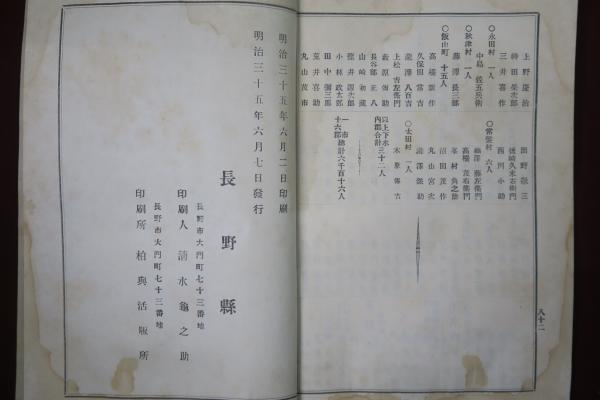 上野慶治
時田榮次郎
三井喜作
◯永田村 一人
中島峩五兵衞
◯秋津村 一人
藤澤長三郎
◯飯山町 十五人
高橋新作
久保田常吉
瀧澤八百吉
上松吉左衞門
萩原彌助
長谷部正八
山崎初藏
龍井四次郎
小林政太郎
田中彌三郎
荒井喜助
丸山茂市
田野敬三
後崎久米右衞門
西川小助
◯常盤村 六人
藤左衞門
高橋茂右衞門
峯村角之助
沼田茂作
丸山宮次
瀧澤彌助
◯太田村 一人
木原傳六
以上下水
內郡合計 三十二人
一市
十六郡 總計六千百十六人
八十二
明治三十五年六月二日印刷
明治三十五年六月七日發行
長野縣
長野市大門町七十三番地
印刷人 清水龜之助
長野市大門町七十三番地
印刷所 柏與活版所